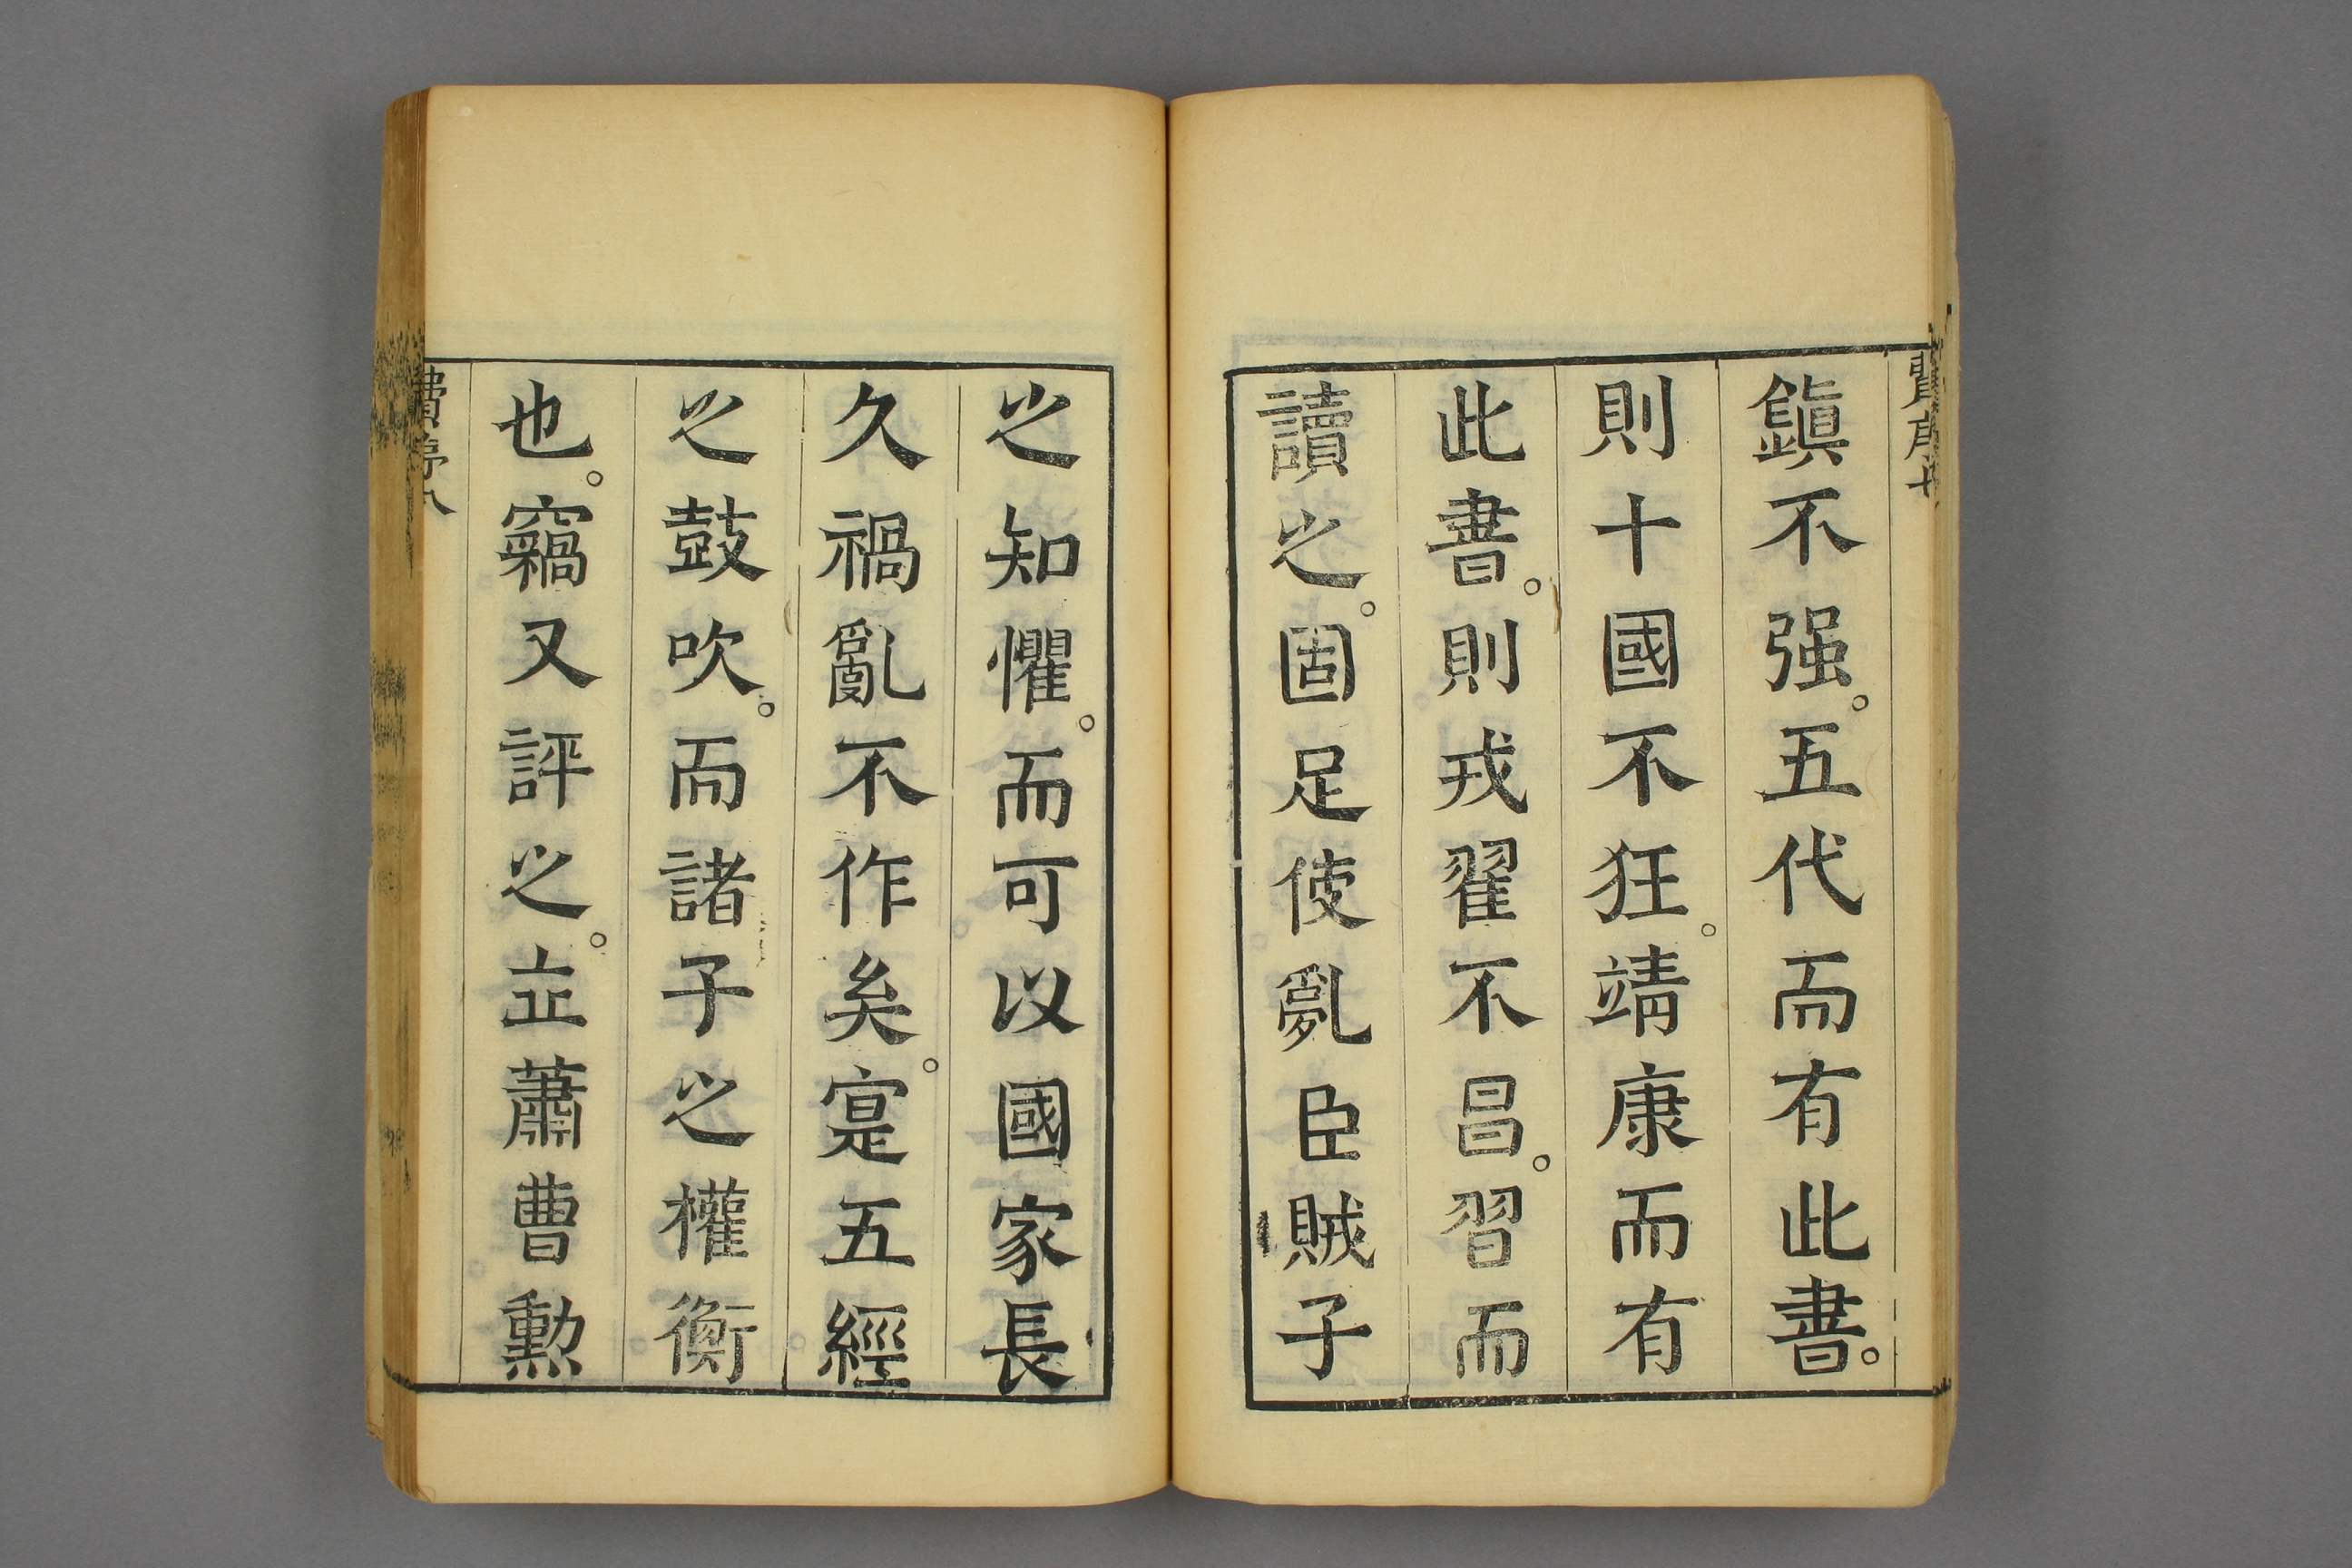 鎭不强。五代而有此書。
則十國不狂。靖康而有
此書。則戎翟不昌。習而
讀之。固足使亂臣賊子
之知懼。而可以國家長
久禍亂不作矣。寔五經
之鼓吹。而諸子之權衡
也。竊又評之。並蕭曹勲